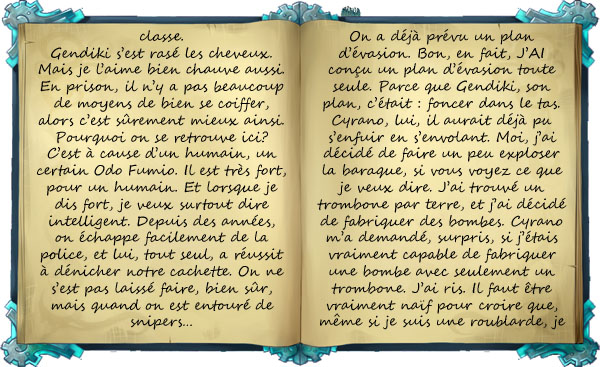 classe.
Gendiki s'est rasé les cheveux.
Mais je l'aime bien chauve aussi.
En prison, il n'y a pas beaucoup
de moyens de bien se coiffer,
alors c'est sûrement mieux ainsi.
Pourquoi on se retrouve ici?
C'est à cause d'un humain, un
certain Odo Fumio. Il est très fort,
pour un humain. Et lorsque je
dis fort, je veux surtout dire
intelligent. Depuis des années,
on échappe facilement de la
police, et lui, tout seul, a réussit
à dénicher notre cachette. On ne
s'est pas laissé faire, bien sûr,
mais quand on est entouré de
snipers...
On a déjà prévu un plan
d'évasion. Bon, en fait, J'AI
conçu un plan d'évasion toute
seule. Parce que Gendiki, son
plan, c'était : foncer dans le tas.
Cyrano, lui, il aurait déjà pu
s'enfuir en s'envolant. Moi, j'ai
décidé de faire un peu exploser
la baraque, si vous voyez ce que
je veux dire. J'ai trouvé un
trombone par terre, et j'ai décidé
de fabriquer des bombes. Cyrano
m'a demandé, surpris, si j'étais
vraiment capable de fabriquer
une bombe avec seulement un
trombone. J'ai ris. Il faut être
vraiment naïf pour croire que,
même si je suis une roublarde, je